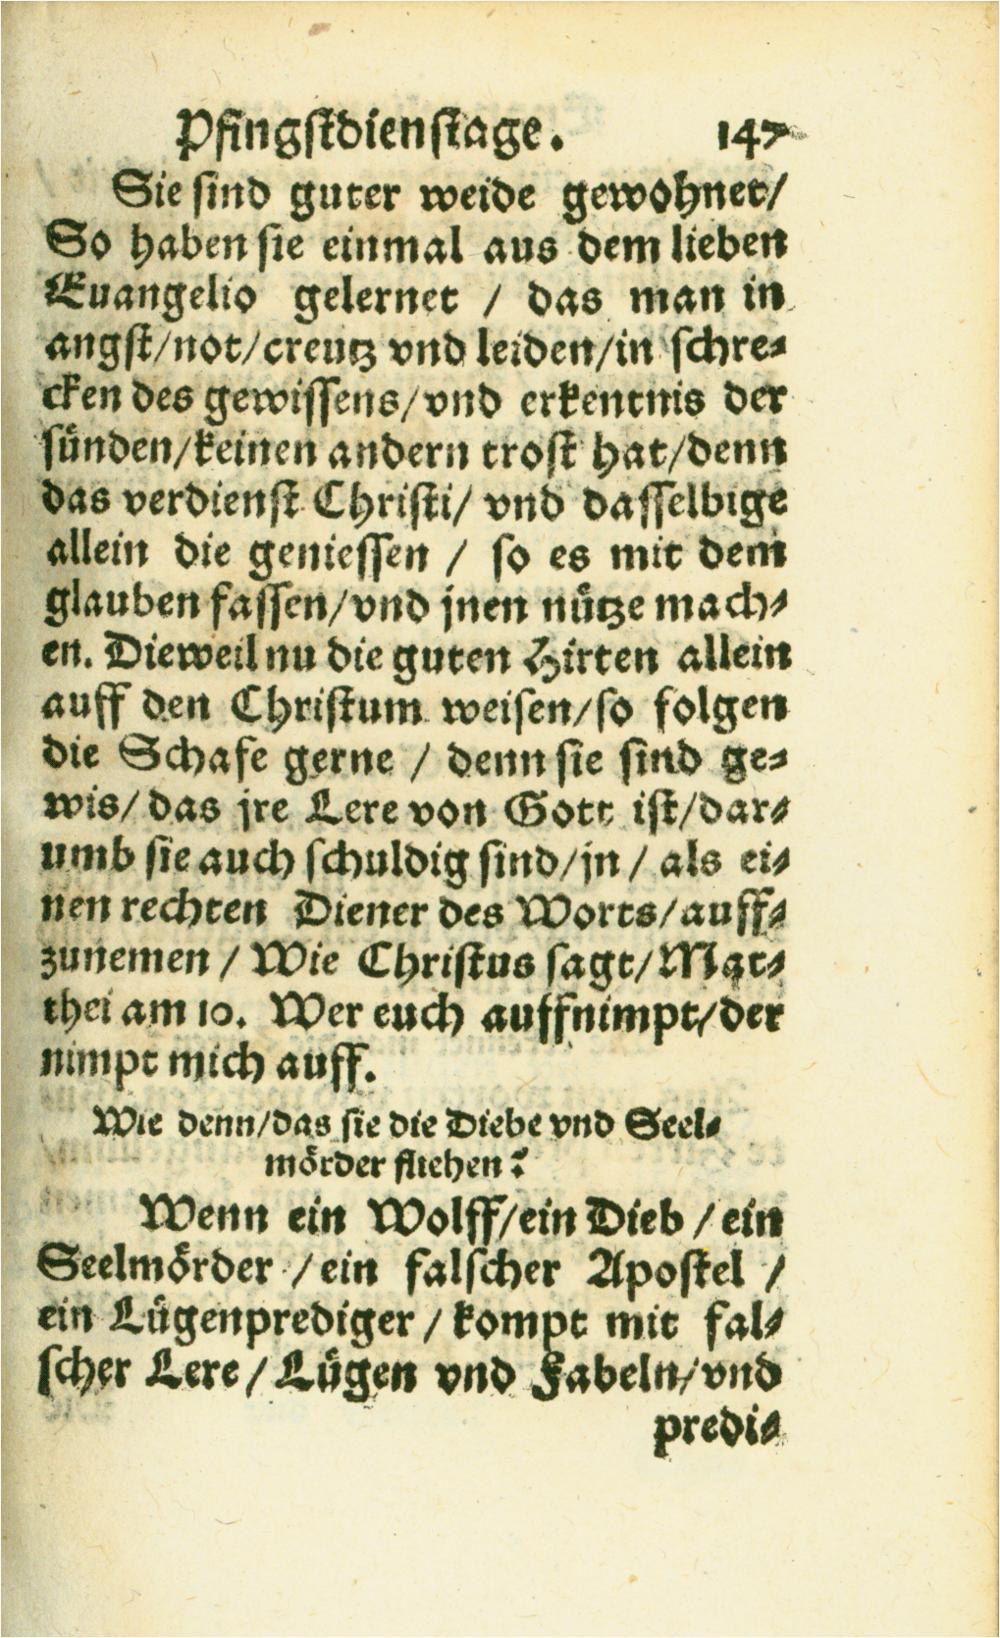 Pfingſtdienſtage. 147
Sie ſind guter weide gewohnet/
So haben ſie einmal aus dem lieben
Euangelio gelernet / das man in
angſt/not/creutz vnd leiden/in ſchre⸗
cken des gewiſſens/vnd erkentnis der
ſünden/keinen andern troſt hat/denn
das verdienſt Chriſti/ vnd daſſelbige
allein die genieſſen / ſo es mit dem
glauben faſſen/vnd jnen nütze mach⸗
en. Dieweil nu die guten Hirten allein
auff den Chriſtum weiſen/ſo folgen
die Schafe gerne / denn ſie ſind ge⸗
wis/ das jre Lere von Gott iſt/dar⸗
umb ſie auch ſchuldig ſind/jn / als ei⸗
nen rechten Diener des Worts/auff⸗
zunemen / Wie Chriſtus ſagt/Mat⸗
thei am 10. Wer euch auffnimpt/der
nimpt mich auff.
Wie denn/das ſie die Diebe vnd Seel⸗
mörder fliehen?
Wenn ein Wolff/ein Dieb / ein
Seelmörder / ein falſcher Apoſtel /
ein Lügenprediger / kompt mit fal⸗
ſcher Lere / Lügen vnd Fabeln/vnd
predi⸗